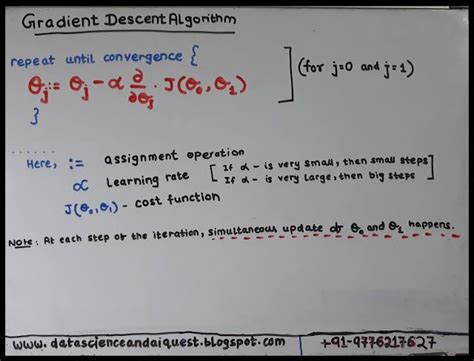 Gradient Descent Algorithm
repeat until convergence {
θj := θj - α ∂/∂θj . J(θ0, θ1) ] (for j=0 and j=1)
}
......
Here, := assignment operation
α Learning rate [ If α - is very small, then small steps
If α - is very large, then big steps ]
J(θ0, θ1) - cost function
Note: At each step of the iteration, simultaneous update of θ0 and θ1 happens.
www.datascienceandaiquest.blogspot.com +91-9776217627